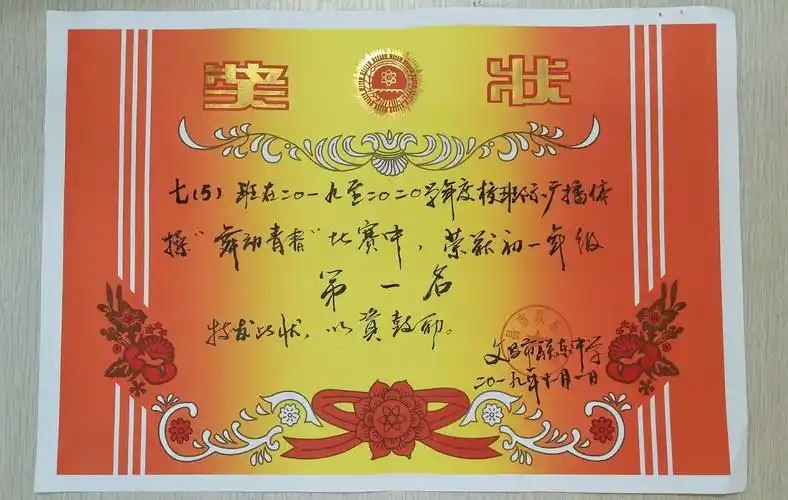 奖 状
七(5)班在二〇一九至二〇二〇学年度校班际广播体
操"舞动青春"比赛中，荣获初一年级
第一名
特发此状，以资鼓励。
文昌市联东中学
二〇一九年十一月一日